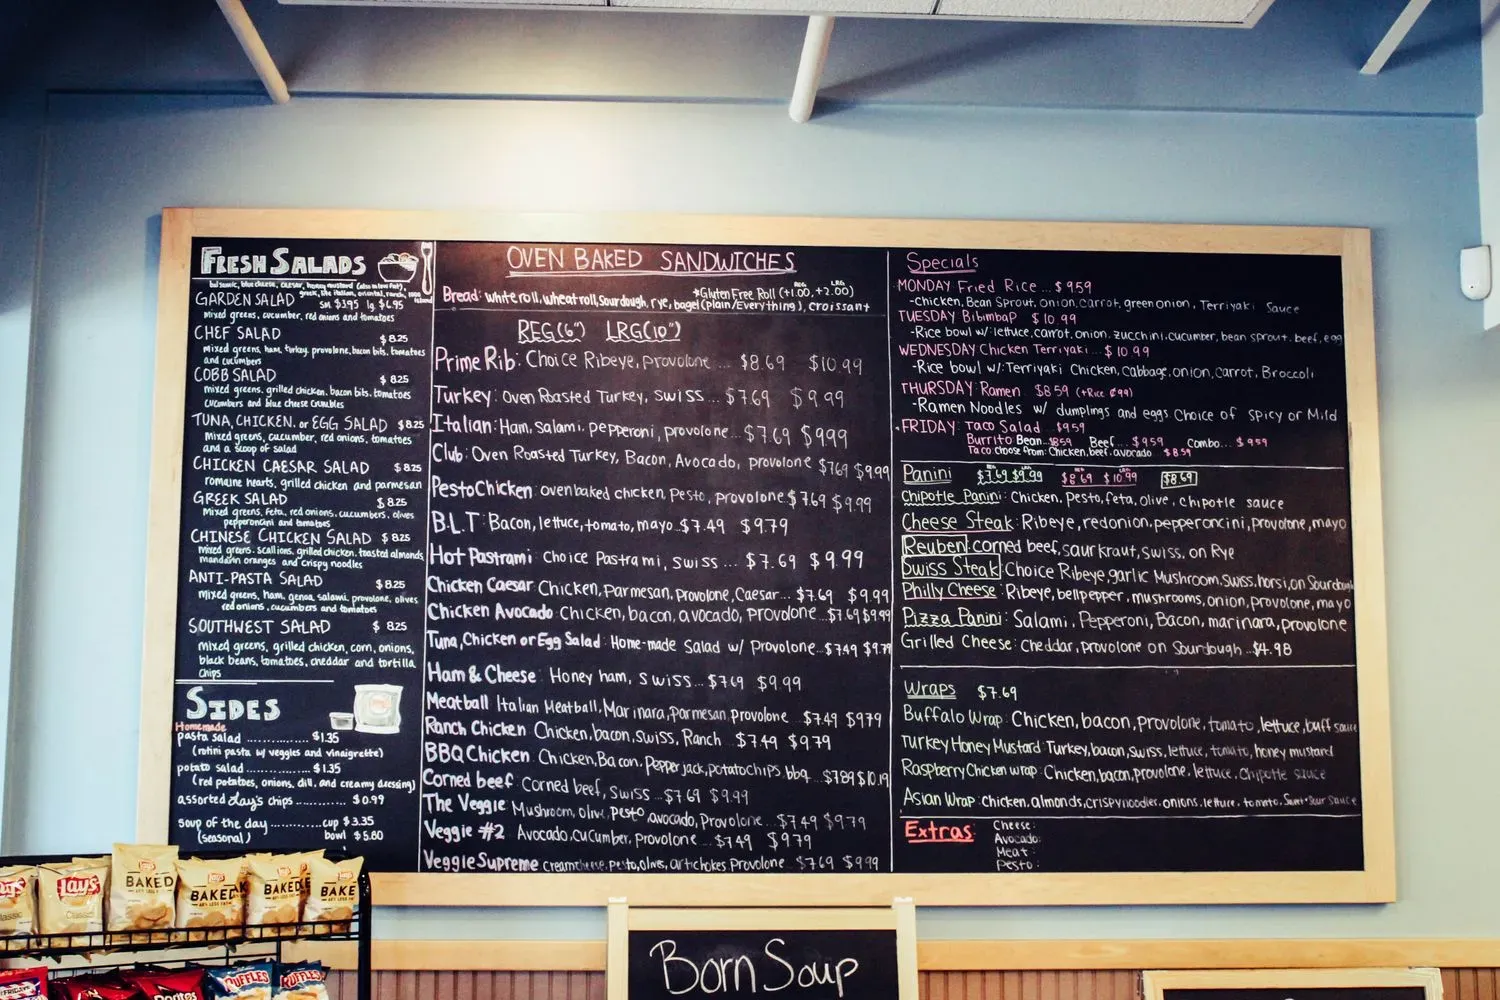 FRESH SALADS
balsamic, blue cheese, caesar, honey mustard (also in low fat),
greek, lite italian, oriental, ranch, 1000 island
GARDEN SALAD sm $3.95 lg $6.95
mixed greens, cucumber, red onions and tomatoes
CHEF SALAD $8.25
mixed greens, ham, turkey, provolone, bacon bits, tomatoes
and cucumbers
COBB SALAD $8.25
mixed greens, grilled chicken, bacon bits, tomatoes
cucumbers and blue cheese crumbles
TUNA, CHICKEN, or EGG SALAD $8.25
mixed greens, cucumber, red onions, tomatoes
and a scoop of salad
CHICKEN CAESAR SALAD $8.25
romaine hearts, grilled chicken and parmesan
GREEK SALAD $8.25
Mixed greens, feta, red onions, cucumbers, olives
pepperoncini and tomatoes
CHINESE CHICKEN SALAD $8.25
mixed greens, scallions, grilled chicken, toasted almonds
mandarin oranges and crispy noodles
ANTI-PASTA SALAD $8.25
mixed greens, ham, genoa, salami, provolone, olives
red onions, cucumbers and tomatoes
SOUTHWEST SALAD $ 8.25
mixed greens, grilled chicken, corn, onions,
black beans, tomatoes, cheddar and tortilla
chips
SIDES
Homemade
pasta salad ............... $1.35
(rotini pasta w/ veggies and vinaigrette)
potato salad ............... $1.35
(red potatoes, onions, dill, and creamy dressing)
assorted Lay's chips ............ $0.99
soup of the day ............ cup $3.35
(seasonal) bowl $5.60
OVEN BAKED SANDWICHES
Bread: white roll, wheat roll, sourdough, rye, bagel (plain/Everything), croissant
*Gluten Free Roll (+1.00, +2.00)
REG LRG
REG(6") LRG(10")
Prime Rib: Choice Ribeye, provolone ... $8.69 $10.99
Turkey: Oven Roasted Turkey, swiss ... $7.69 $9.99
Italian: Ham, salami, pepperoni, provolone... $7.69 $9.99
Club: Oven Roasted Turkey, Bacon, Avocado, provolone $7.69 $9.99
Pesto Chicken: oven baked chicken, pesto, provolone $7.69 $9.99
B.L.T: Bacon, lettuce, tomato, mayo .. $7.49 $9.79
Hot Pastrami: Choice Pastrami, swiss ... $7.69 $9.99
Chicken Caesar: Chicken, parmesan, provolone, Caesar... $7.69 $9.99
Chicken Avocado: Chicken, bacon, avocado, provolone $7.69 $9.99
Tuna, Chicken or Egg Salad: Home-made Salad w/ Provolone...$7.49 $9.79
Ham & Cheese: Honey ham, swiss... $7.69 $9.99
Meatball Italian Meatball, Marinara, Parmesan, Provolone .. $7.49 $9.79
Ranch Chicken Chicken, bacon, swiss, Ranch .. $7.49 $9.79
BBQ Chicken Chicken, Bacon, Pepper jack, potato chips, bbq ...$7.89 $10.19
Corned beef: Corned beef, Swiss ... $7.69 $9.99
The Veggie Mushroom, olive, pesto, avocado, Provolone ... $7.49 $9.79
Veggie #2 Avocado, cucumber, provolone ... $7.49 $9.79
Veggie Supreme Cream cheese, Pesto, olives, artichokes Provolone... $7.69 $9.99
Specials
MONDAY Fried Rice ... $9.59
-chicken, Bean Sprout, onion, carrot, green onion, Terriyaki Sauce
TUESDAY BibimbaP $10.99
-Rice bowl w/: lettuce, carrot, onion, zucchini, cucumber, bean sprout, beef, egg
WEDNESDAY Chicken Terriyaki ... $10.99
-Rice bowl w/: Terriyaki Chicken, Cabbage, onion, carrot, Broccoli
THURSDAY: Ramen $8.59 (+Rice ¢99)
-Ramen Noodles w/ dumplings and eggs choice of spicy or Mild
FRIDAY: Taco Salad .. $9.59
Burrito Bean...$8.59 Beef... $9.59 Combo... $9.59
Taco choose from: Chicken, beef, avocado $8.59
Panini $7.69 $9.99 $8.69 $10.99 $8.69
Chipotle Panini: Chicken, pesto, feta, olive, chipotle sauce
Cheese Steak: Ribeye, red onion, pepperoncini, provolone, mayo
Reuben: corned beef, saurkraut, swiss, on Rye
Swiss Steak: Choice Ribeye, garlic Mushroom, swiss, horsi, on Sourdough
Philly Cheese: Ribeye, bell pepper, mushrooms, onion, provolone, mayo
Pizza Panini: Salami, Pepperoni, Bacon, marinara, provolone
Grilled Cheese: cheddar, provolone on Sourdough ..$4.98
Wraps $7.69
Buffalo Wrap: Chicken, bacon, provolone, tomato, lettuce, buff sauce
Turkey Honey Mustard: Turkey, bacon, swiss, lettuce, tomato, honey mustard
Raspberry Chicken wrap: Chicken, bacon, provolone, lettuce, Chipotle sauce
Asian Wrap: chicken, almonds, crispy noodles, onions, lettuce, tomato, Sweet + Sour Sauce
Extras Cheese:
Avocado:
Meat:
Pesto:
Lay's
Classic
Lay's
Classic
Lay's
BAKED
BAKED
BAKED
BAKE
RUFFLES
RUFFLES
Doritos
Born Soup